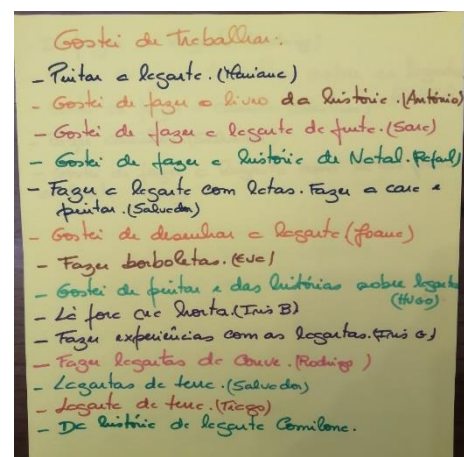 Gostei de Trabalhar:.
- Pintar a lagarta. (Mariana)
- Gostei de fazer o livro da história. (António)
- Gostei de fazer a lagarta de fruta. (Sara)
- Gostei de fazer a história de Natal. (Rafael)
- Fazer a lagarta com latas. Fazer a cara e
pintar. (Salvador)
- Gostei de desenhar a lagarta (Joana)
- Fazer borboletas. (Eva)
- Gostei de pintar e das histórias sobre lagarta
(HUGO)
- Lá fora na horta. (Iris B)
- Fazer experiências com as lagartas. (Iris G)
- Fazer lagartas de Couve. (Rodrigo)
- Lagartas da terra. (Salvador)
- Lagarta da terra. (Tiago)
- Da história da lagarta Comilona.